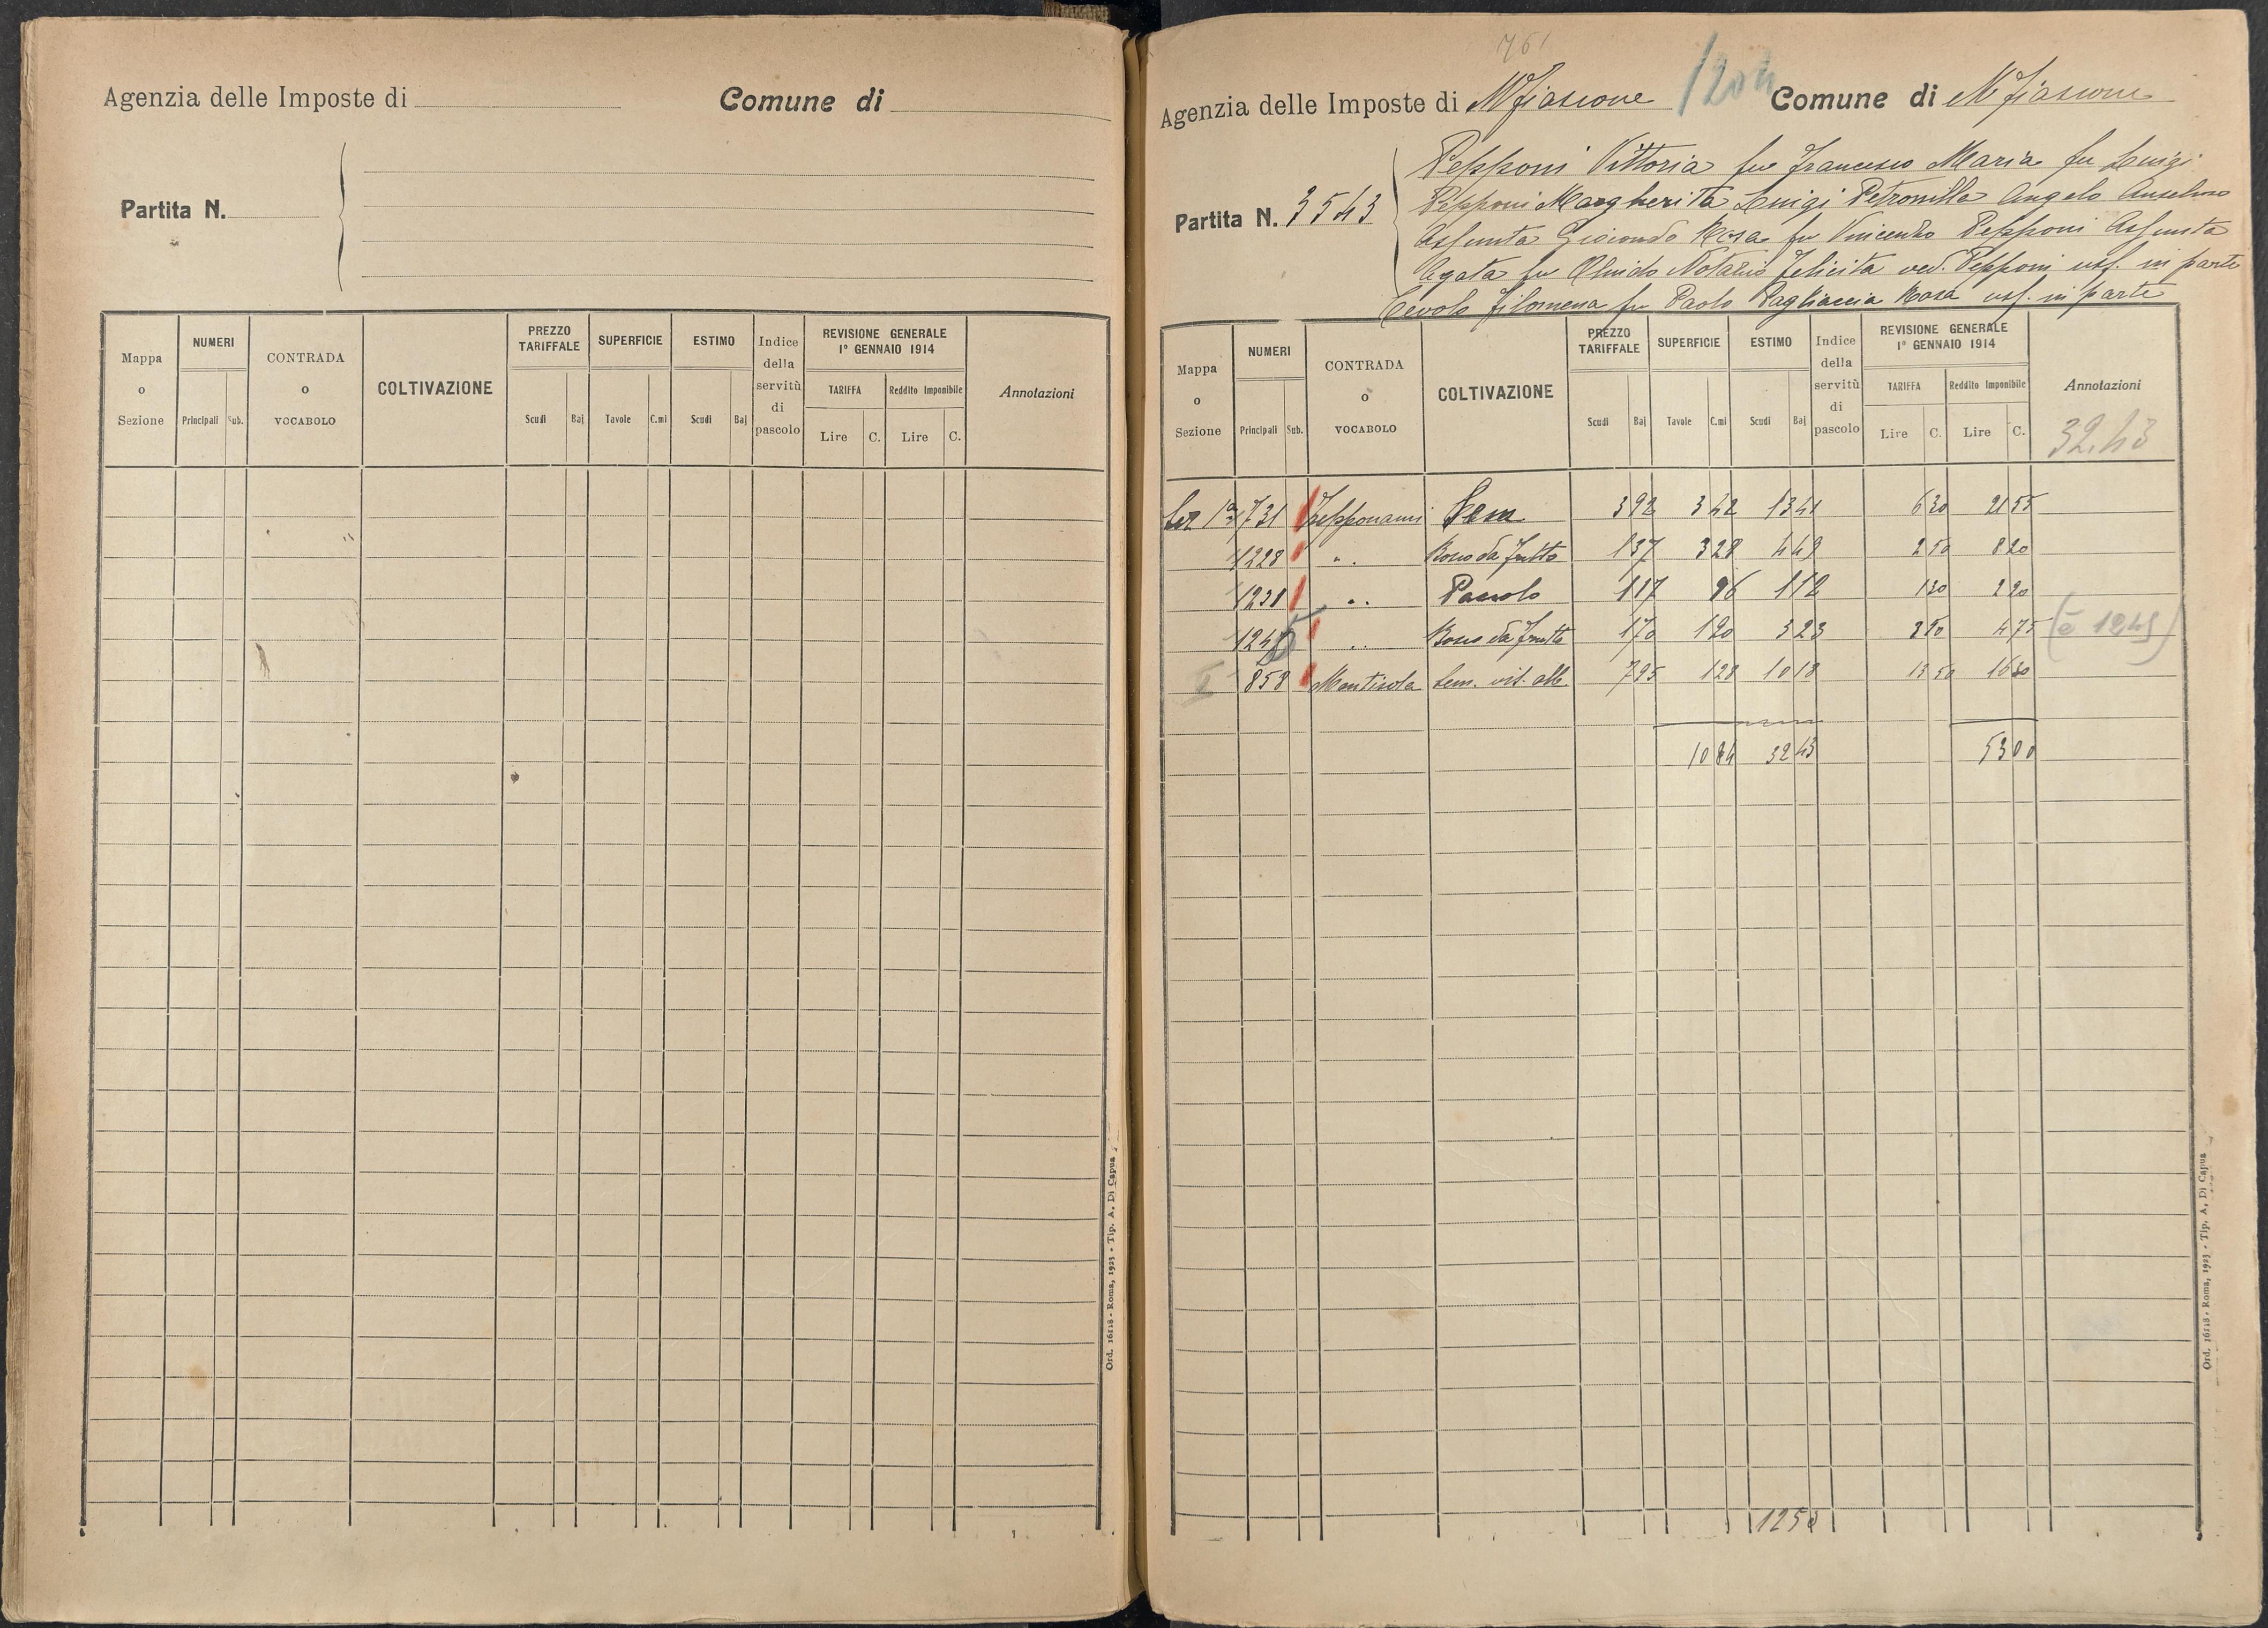 Agenzia delle Imposte di
Comune di
Partita N.
Mappa o Sezione
NUMERI
Principali Sub.
CONTRADA o VOCABOLO
COLTIVAZIONE
PREZZO TARIFFALE
Scudi Baj
SUPERFICIE
Tavole C.mi
ESTIMO
Scudi Baj
Indice della servitù di pascolo
REVISIONE GENERALE
1° GENNAIO 1914
TARIFFA
Lire C.
Reddito Imponibile
Lire C.
Annotazioni
Ord. 16118 - Roma, 1923 - Tip. A. Di Capua
761
Agenzia delle Imposte di M Fiascone 1204 Comune di M Fiascone
Partita N. 3543
Pepponi Vittoria fu Francesco Maria fu Luigi
Pepponi Margherita Luigi Petronilla Angelo Anselmo
Assunta Giocondo Rosa fu Vincenzo Pepponi Assunta
Agata fu Olindo Notazio Felicita ved. Pepponi usf. in parte
Cevolo Filomena fu Paolo Pagliaccia Rosa usf. in parte
Mappa o Sezione
NUMERI
Principali Sub.
CONTRADA o VOCABOLO
COLTIVAZIONE
PREZZO TARIFFALE
Scudi Baj
SUPERFICIE
Tavole C.mi
ESTIMO
Scudi Baj
Indice della servitù di pascolo
REVISIONE GENERALE
1° GENNAIO 1914
TARIFFA
Lire C.
Reddito Imponibile
Lire C.
Annotazioni
32.43
Sez 1a 731 Zepponami Sem 3 92 3 42 13 41 6 30 21 55
1228 " Bosco da frutto 1 37 3 28 4 49 2 50 8 20
1231 " Pascolo 1 17 96 1 12 1 30 2 20
124 " Bosco da frutto 1 70 1 90 3 23 2 50 4 75 (è 1245)
II 858 Montisola Sem. vit. alb. 7 95 1 28 10 18 13 50 16 30
10 84 32 43 53 00
1258
Ord. 16118 - Roma, 1923 - Tip. A. Di Capua